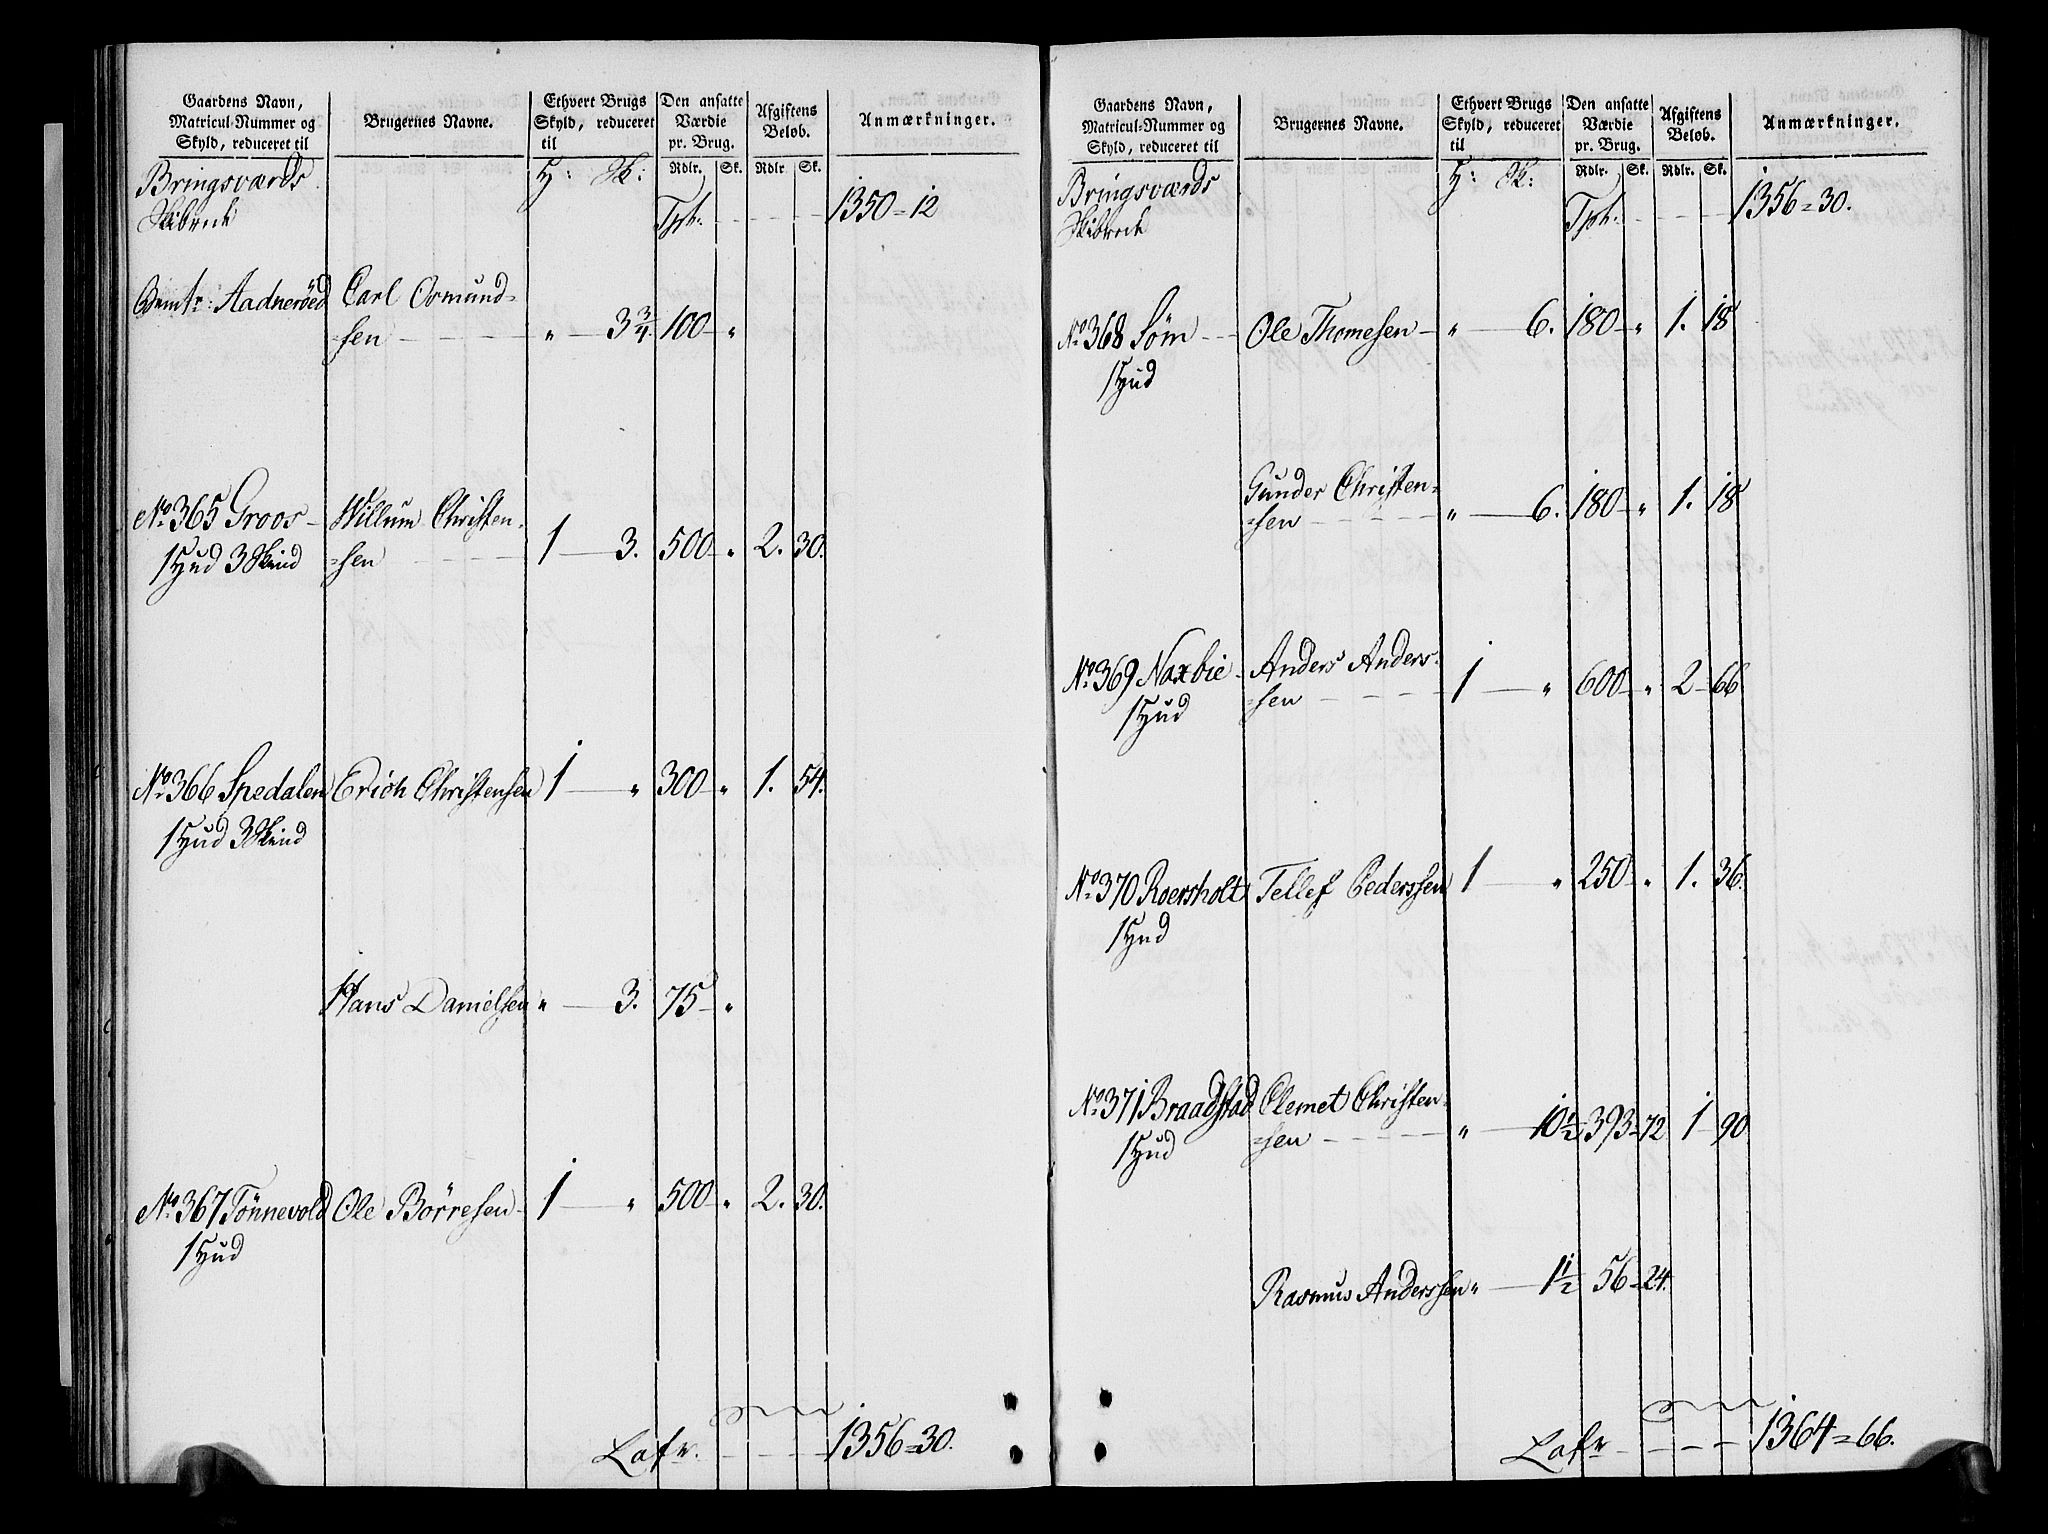 Gaardens Navn, Matricul-Nummer og Skyld, reduceret til
Brugernes Navne.
Ethvert Brugs Skyld, reduceret til
Den ansatte Værdie pr. Brug.
Afgiftens Beløb.
Anmærkninger.
Rdlr. Sk. Rdlr. Sk.
Bringsværds H: Sk:
Skibrede Tpt. 1350 = 12
Aadneröed Carl Osmund=
=sen " 3 3/4. 100 "
No 365 Groos Willum Christen=
1 Hud 3 Skind =sen 1 3. 500 " 2. 30.
No 366 Spedalen Erich Christensen 1 " 300 " 1. 54.
1 Hud 3 Skind
Hans Danielsen " 3. 75 "
No 367 Tönnevold Ole Börresen 1 " 500 " 2. 30.
1 Hud
Lafr. 1356 = 30.
Gaardens Navn, Matricul-Nummer og Skyld, reduceret til
Brugernes Navne.
Ethvert Brugs Skyld, reduceret til
Den ansatte Værdie pr. Brug.
Afgiftens Beløb.
Anmærkninger.
Rdlr. Sk. Rdlr. Sk.
Bringsværds H: Sk:
Skibrede Tpt. 1356 = 30.
No 368 Söm Ole Thomesen " 6. 180 " 1. 18
1 Hud
Gunder Christen=
=sen " 6. 180 " 1. 18
No 369 Naxbie Anders Anders=
1 Hud =sen 1 " 600 " 2 66
No 370 Roersholt Tellef Pederssen 1 " 250 " 1. 36.
1 Hud
No 371 Braadstad Clemet Christen=
1 Hud =sen " 10 1/2 393 = 72 1 90
Rasmus Anderssen " 1 1/2 56 = 24.
Lafr 1364 = 66.